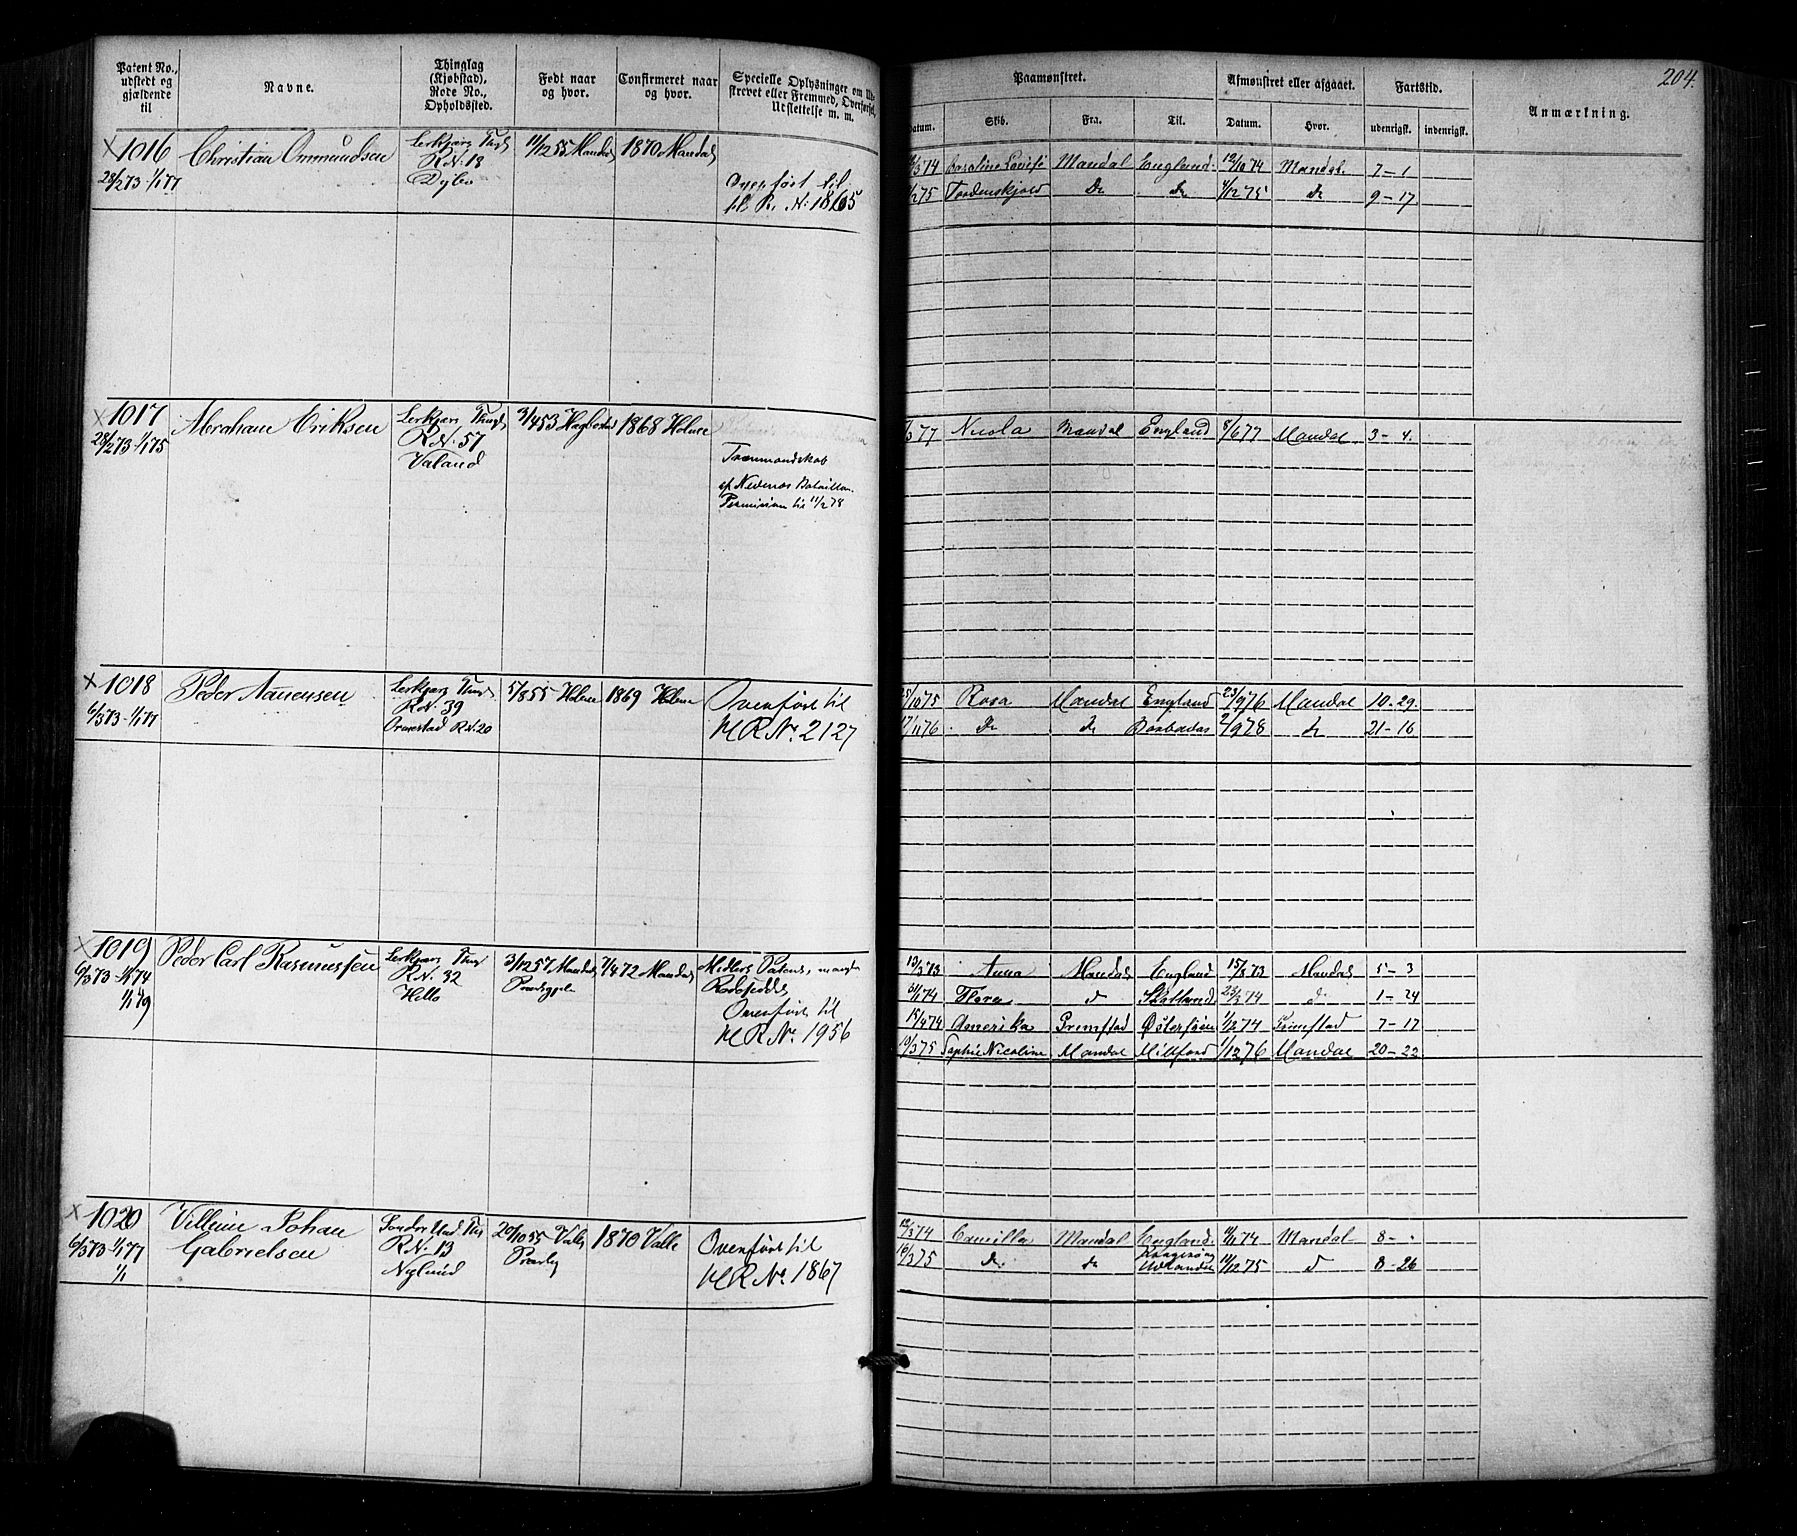 204.
Patent No., udstedt og gjældende til
Navne.
Thinglag (Kjøbstad), Rode No., Opholdssted.
Født naar og hvor.
Confirmeret naar og hvor.
Specielle Oplysninger om Ud-
skrevet eller Fremmed, Overførsel,
Udslettelse m. m.
Paamønstret.
Datum.
Skib.
Fra.
Til.
Afmønstret eller afgaaet.
Datum.
Hvor.
Fartstid.
udenrigsk.
indenrigsk.
Anmærkning.
X 1016 Christian Ommundsen
28/2 73 - 1/1 77
R.N. 18
Dybo
11/12 55 Mandal 1870 Mandal
Overført til
R. N: 1865
/3 74 Caroline Lovise Mandal England 12/10 74 Mandal. 7-1
/2 75 Tordenskjold Do do 4/12 75 do 9-17
X 1017 Abraham Eriksen
28/2 73 - 1/1 75
R.N. 57
Valand
3/4 53 Hægebostad 1868 Holme
af Nedenæs Batallion
Permission til 11/2 78
/3 77 Nicola Mandal England 8/6 77 Mandal 3-4.
X 1018 Peder Aanensen
6/3 73 - 1/1 77
R.N. 39
Ormestad R.N. 20
5/8 55 Holme 1869 Holme
Overført til
HR No. 2127
25/10 75 Rosa Mandal England 23/9 76 Mandal 10-29.
17/11 76 Do do Barbados 2/9 78 do 21-16
X 1019 Peder Carl Rasmussen
6/3 73 - 1/1 74
1/1 79
R.N. 32
Hille
3/12 57 Mandal 7/4 72 Mandal
Overført til
HR No. 1956
13/3 73 Anna Mandal England 15/8 73 Mandal 5-3
31/1 74 Flora d Skotland 25/3 74 d 1-24
15/4 74 Amerika Grimstad Østersøen 1/12 74 Grimstad 7-17
10/3 75 Sophie Nicoline Mandal Milford 1/12 76 Mandal 20-22
X 1020 Villum Johan
Gabrielsen
6/3 73 - 1/1 77
1/1
R.N. 13
Nylund
20/10 55 Valle 1870 Valle
Overført til
HR No. 1867
12/3 74 Camilla Mandal England 11/11 74 Mandal 8-"
16/3 75 do do 11/12 75 d 8-26